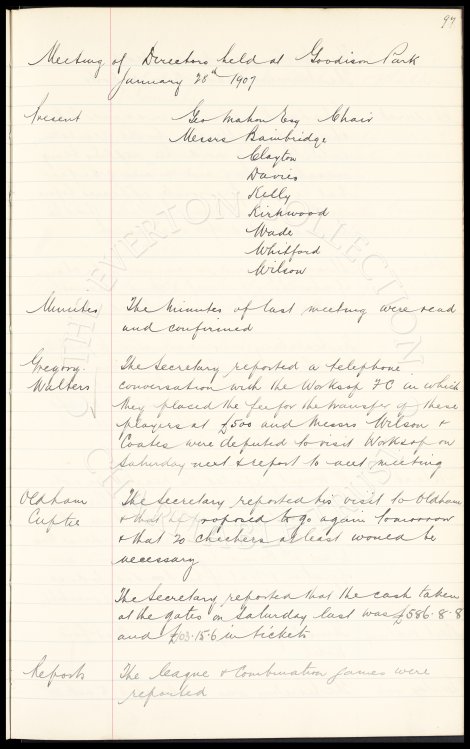 97
Meeting of Directors held at Goodison Park
January 28th 1907
Present
Geo Mahon Esq Chair
Messrs Bainbridge
Clayton
Davies
Kelly
Kirkwood
Wade
Whitford
Wilson
Minutes The minutes of last meeting were read
and confirmed
Gregory The Secretary reported a telephone
Walters conversation with the Worksop FC in which
they placed the fee for the transfer of these
players at £500 and Messrs Wilson &
Coates were deputed to visit Worksop on
Saturday next & report to next meeting
Oldham The Secretary reported his visit to Oldham
Cup tie & that he proposed to go again tomorrow
& that 20 checkers at least would be
necessary
The Secretary reported that the cash taken
at the gates on Saturday last was £586.8.8
and in tickets
Reports The League & Combination games were
reported
THE EVERTON COLLECTION